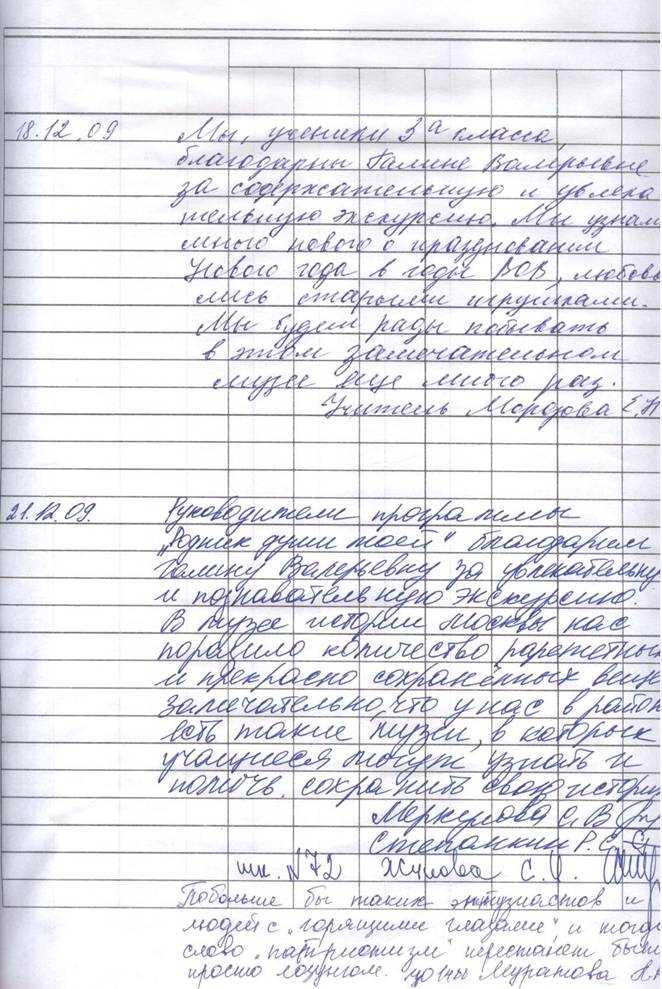 18.12.09 Мы, ученики 3а класса,
благодарны Галине Валерьевне
за содержательную и увлека
тельную экскурсию. Мы узнал
много нового о праздновании
Нового года в годы ВОВ, любова
лись старыми игрушками.
Мы будем рады побывать
в этом замечательном
музее еще много раз.
Учитель Мордова Е.Н
21.12.09. Руководители программы
„Родник души моей" благодарем
Галину Валерьевну за увлекательну
и познавательную экскурсию.
В музее истории Москвы нас
поразило количество раритетных
и прекрасно сохранённых веще
Замечательно, что у нас в район
есть такие музеи, в которых
учащиеся могут узнать и
помочь сохранить свою истори
Меркулова С. В
Степанкин Р. С.
шк. №72 Жулова С.
Побольше бы таких энтузиастов и
людей с „горящими глазами" и тогда
слово „патриотизм" перестанет быть
просто лозунгом. Муратова